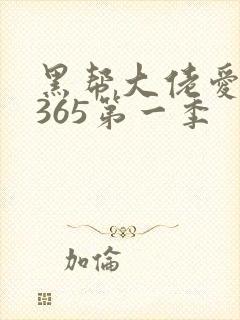 黑帮大佬爱
365第一季
加倫